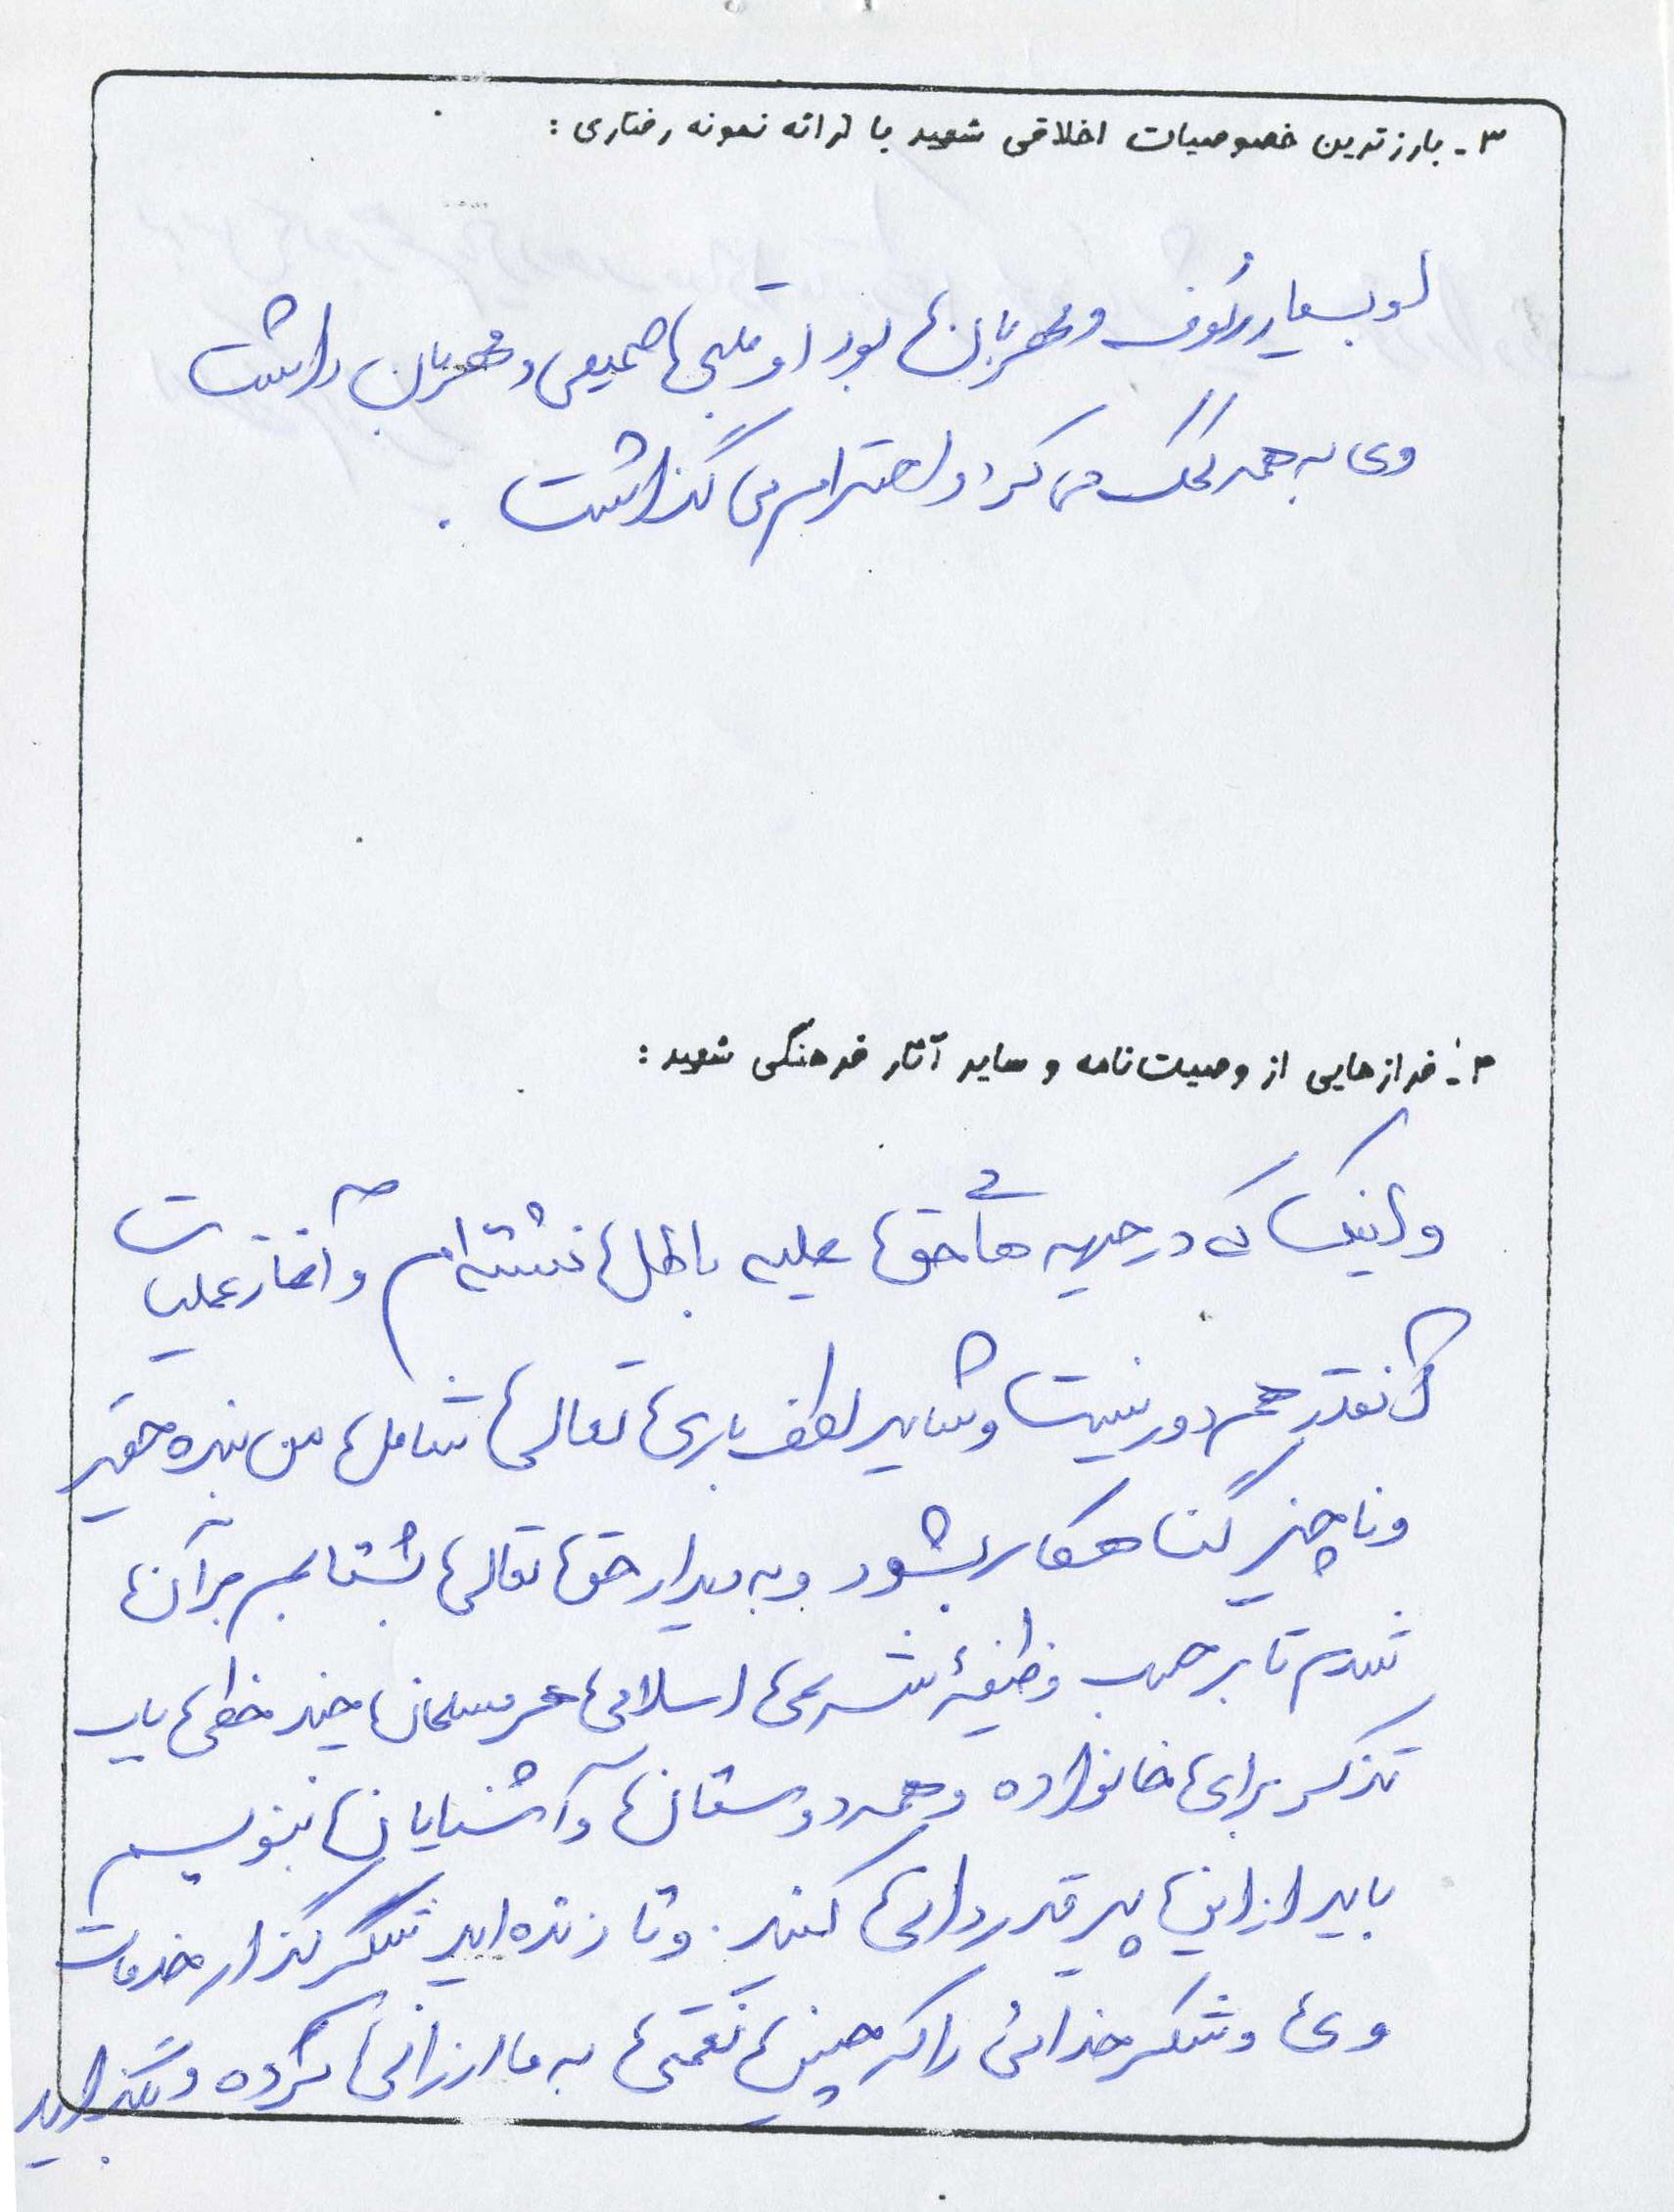 ۳ـ بارزترین خصوصیات اخلاقی شهید با ارائه نمونه رفتاری :
او بسیار رئوف و مهربان بود او قلبی صمیمی و مهربان داشت
وی به همه کمک می کرد و احترام می گذاشت .
۴ـ فرازهایی از وصیت‌نامه و سایر آثار فرهنگی شهید :
و اینک که در جبهه های حق علیه باطل نشسته ام و آغاز عملیات
آنقدر هم دور نیست و شاید لطف باری تعالی شامل من بنده حقیر
و ناچیز گناهکار بشود و به دیدار حق تعالی بشتابم بر آن
شدم تا بر حسب وظیفۀ شرعی اسلامی هر مسلمان چند خطی باب
تذکر برای خانواده و همه دوستان و آشنایان بنویسم
باید از این پیر قدردانی کنید . و تا زنده اید شکرگذار خدمات
وی و شکر خدائی را که چنین نعمتی به ما ارزانی کرده و نگذارید